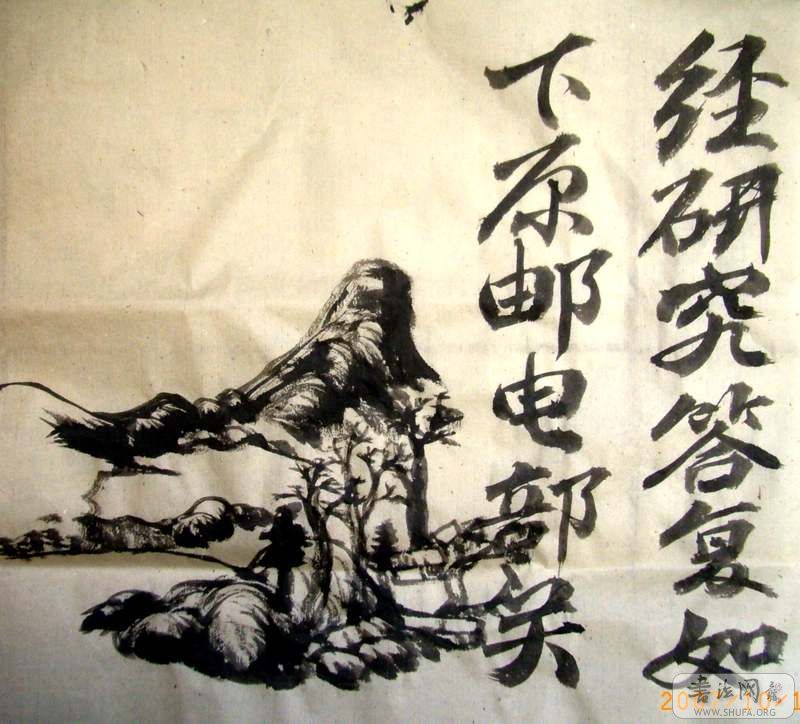 经研究答复如
下原邮电部关
书法网
WWW.SHUFA.ORG